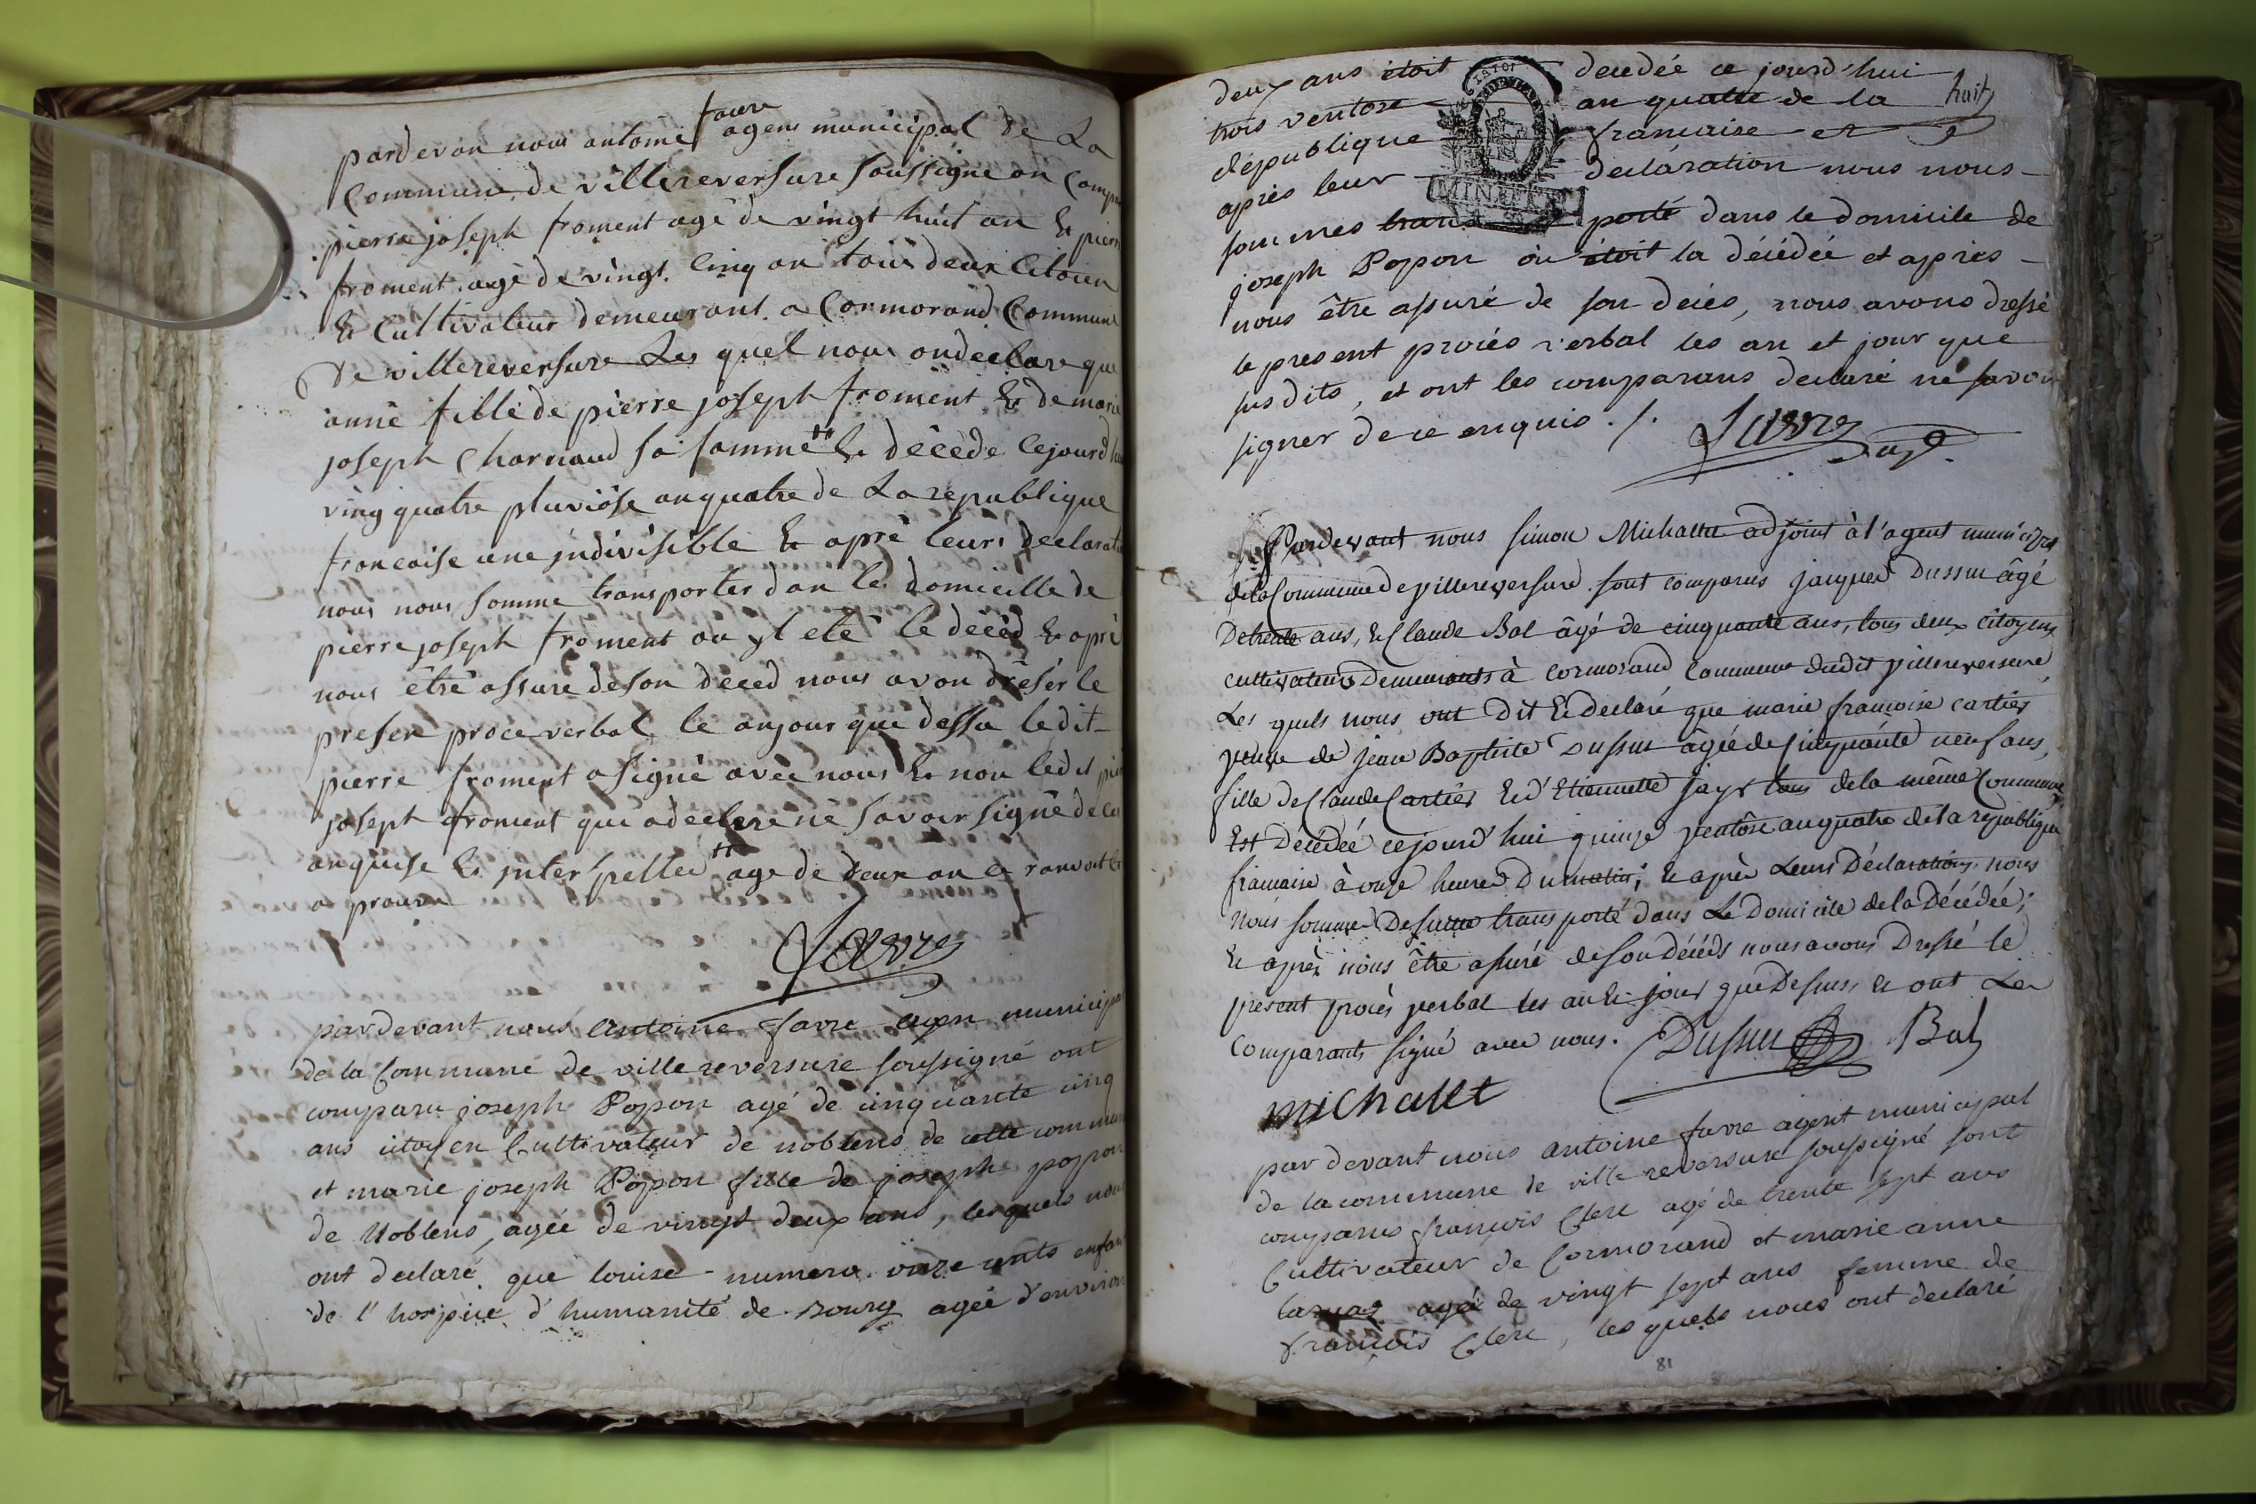 pardevan nous antoine favre agens municipal de La
Commune de villereversure soussigne on Compa
pierre joseph froment agé de vingt huit an & pierre
froment agé de vingt cinq an tous deux Citoien
& Cultivateur demeurant a Cormorand Commune
De villereversure Les quel nous on declare que
anne fille de pierre joseph froment & de marie
joseph Charnaud sa famme # & décède Cejourd hui
ving quatre pluviôse an quatre de La republique
francaise une jndivisible & aprè leurs declarati
nous nous somme transporter dan le domicille de
pierre joseph froment ou yl eté le décéd & aprè
nous êtrê assure deson deced nous avon drésér le
presen procé verbal le anjour que dessu le dit
pierre froment a signé avec nous & non ledit pie
joseph froment qui a declere ne savoir signé de ce
anquise & inter pellée # age de deux an & ranvoit
a prouvu
Favre
pardevant nous antoine favre agen municipa
de la Commune de villereversure soussigné ont
comparu joseph Popon agé de cinquante cinq
ans citoyen Cultivateur de noblens de cette commune
et marie joseph Popon fille de joseph popon
de Noblens, agée de vingt deux ans, lesquels nous
ont declaré que louise numero onze cents enfan
de l'hospice d'humanité de Bourg agée d'environ
deux ans étoit decedée ce jourd'hui
trois ventose an quatre de la huit
République francaise et
après leur declaration nous nous
sommes transporté dans le domicile de
joseph Popon où étoit la décédée et après
nous être assuré de son decés, nous avons dressé
le present procés verbal les an et jour que
susdits, et ont les comparans declaré ne savoir
signer de ce enquis ./. Favre
agt
Pardevant nous simon Michallet adjoint à l'agent municipal
de la Commune de villereversure sont comparus jacques Dussu âgé
De trente ans, & Claude Bal âgé de cinquante ans, tous deux citoyens
cultivateurs Demeurants à Cormorand Commune dudit villereversure,
Les quels nous ont Dit & Declaré que marie françoise cartier
veuve de jean Baptiste Dussu âgée de Cinquante neuf ans,
fille de Claude Cartier & d'Etiennette jayr tous de la même Commune,
Est Décédée cejourd'hui quinze ventôse an quatre de la république
francaise à onze heures Du matin; & après Leurs Déclarations nous
Nous sommes De suitte transporté dans Le Domicile de la Décédée;
& après nous être assuré de son Décéds nous avons Dressé le
present procès verbal les an & jour que Dessus, & ont Les
Comparants signé avec nous. Dussu Bal
michallet
par devant nous antoine favre agent municipal
de la commune de ville reversure soussigné sont
comparus françois Clerc agé de trente sept ans
Cultivateur de Cormorand et marie anne
agée de vingt sept ans femme de
françois Clerc, les quels nous ont declaré
81